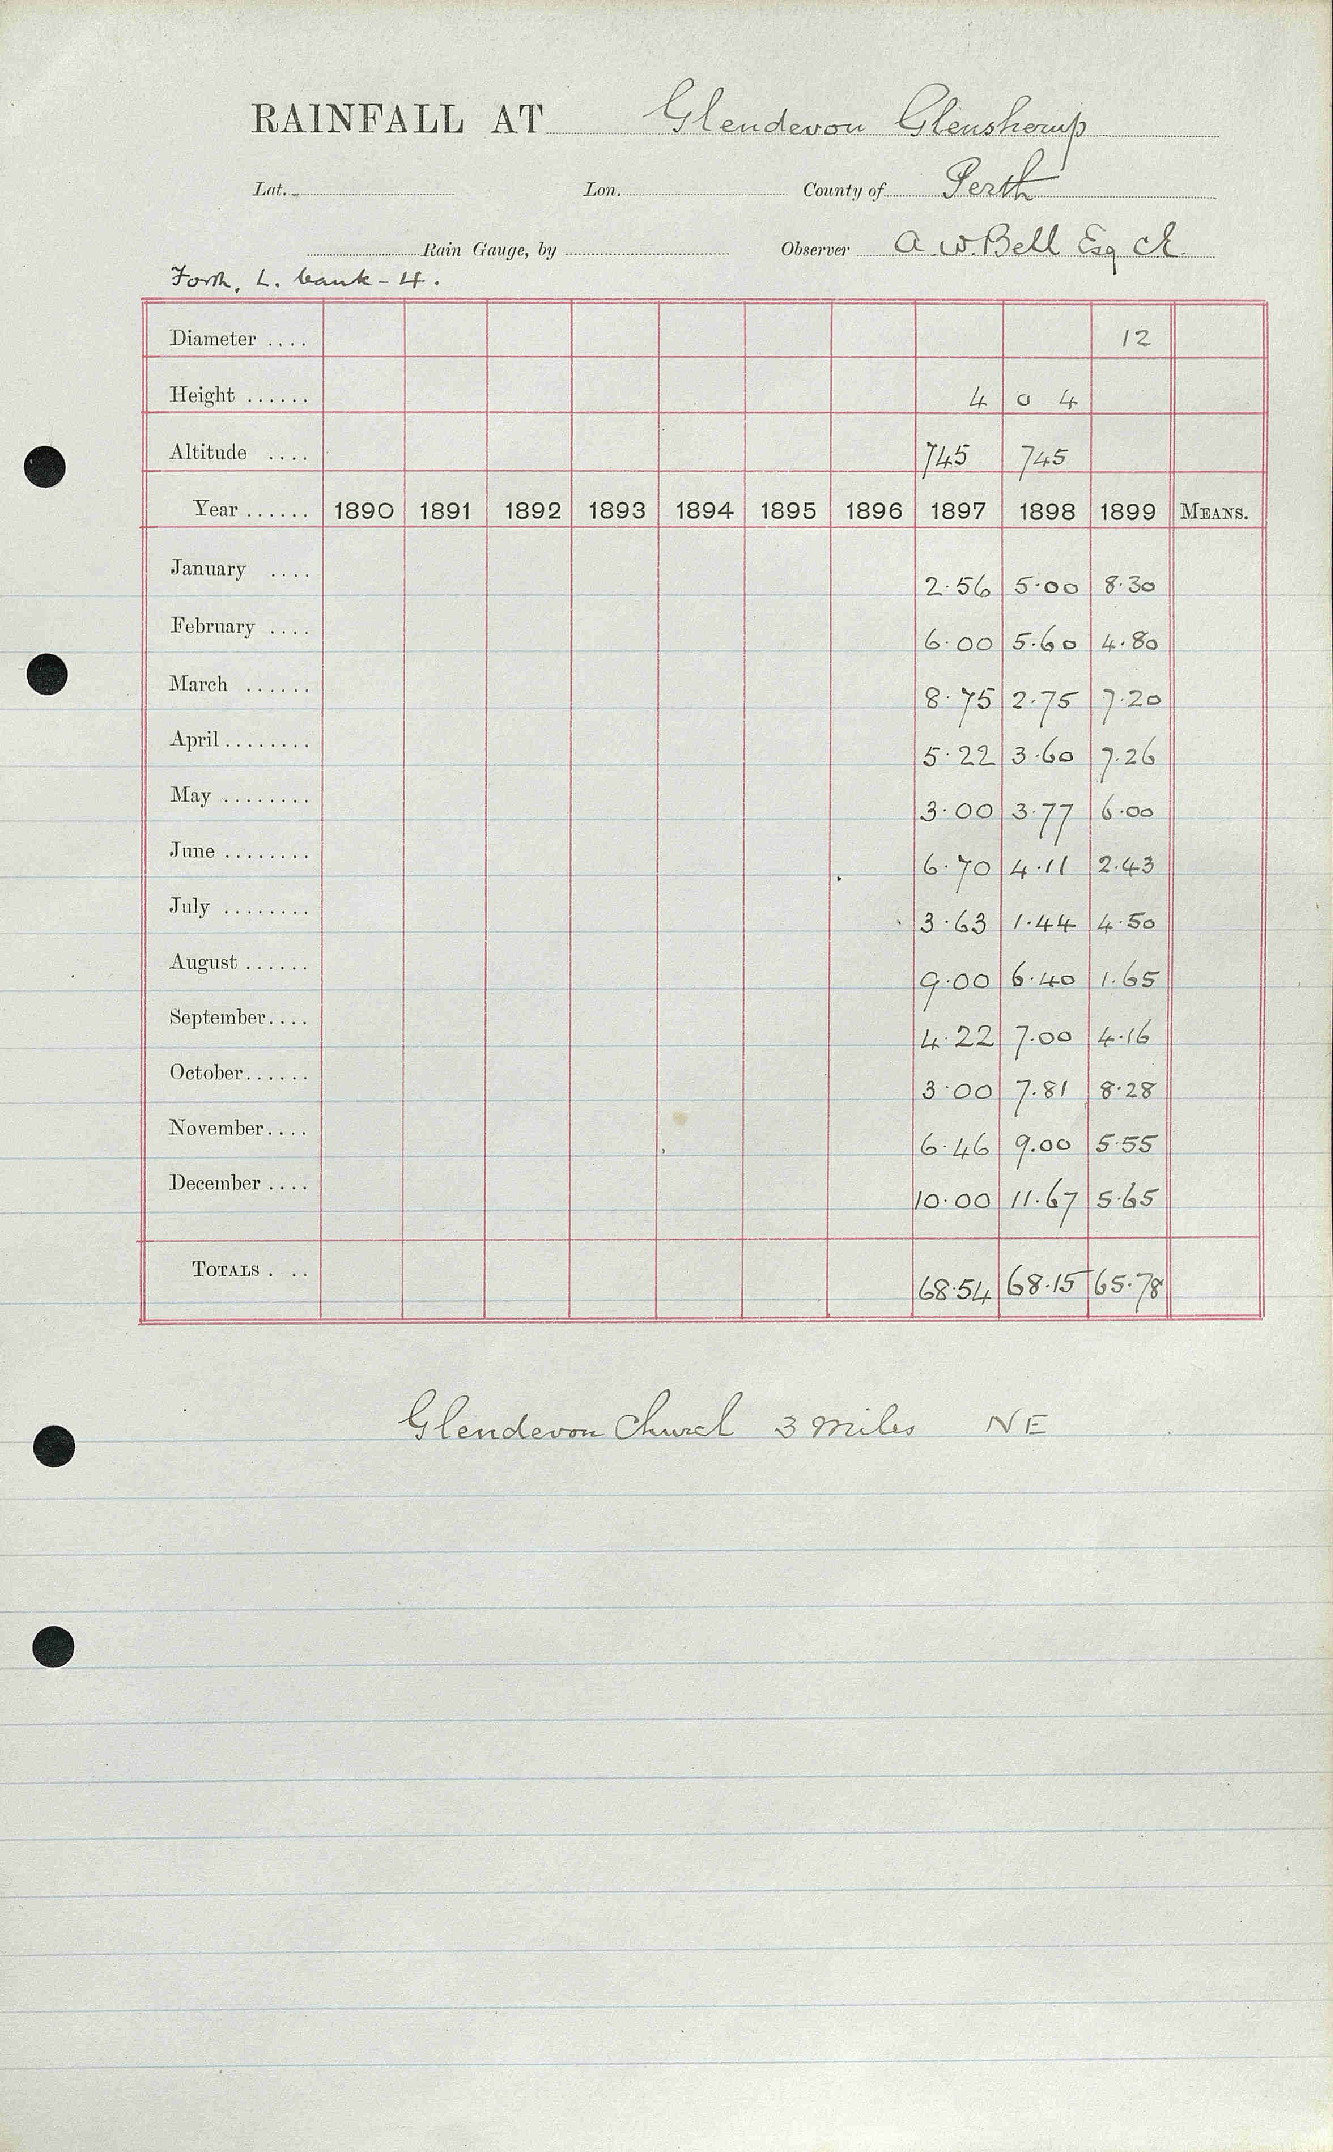 RAINFALL AT Glendevon Glensherup
Lat. Lon. County of Perth
Rain Gauge, by Observer A W. Bell Esq CE
Forth, L. bank - 4.
Diameter .... 12
Height ...... 4 0 4
Altitude .... 745 745
Year ...... 1890 1891 1892 1893 1894 1895 1896 1897 1898 1899 MEANS.
January .... 2.56 5.00 8.30
February .... 6.00 5.60 4.80
March ...... 8.75 2.75 7.20
April ........ 5.22 3.60 7.26
May ........ 3.00 3.77 6.00
June ........ 6.70 4.11 2.43
July ........ 3.63 1.44 4.50
August ...... 9.00 6.40 1.65
September.... 4.22 7.00 4.16
October...... 3.00 7.81 8.28
November.... 6.46 9.00 5.55
December .... 10.00 11.67 5.65
TOTALS . .. 68.54 68.15 65.78
Glendevon Church 3 miles NE